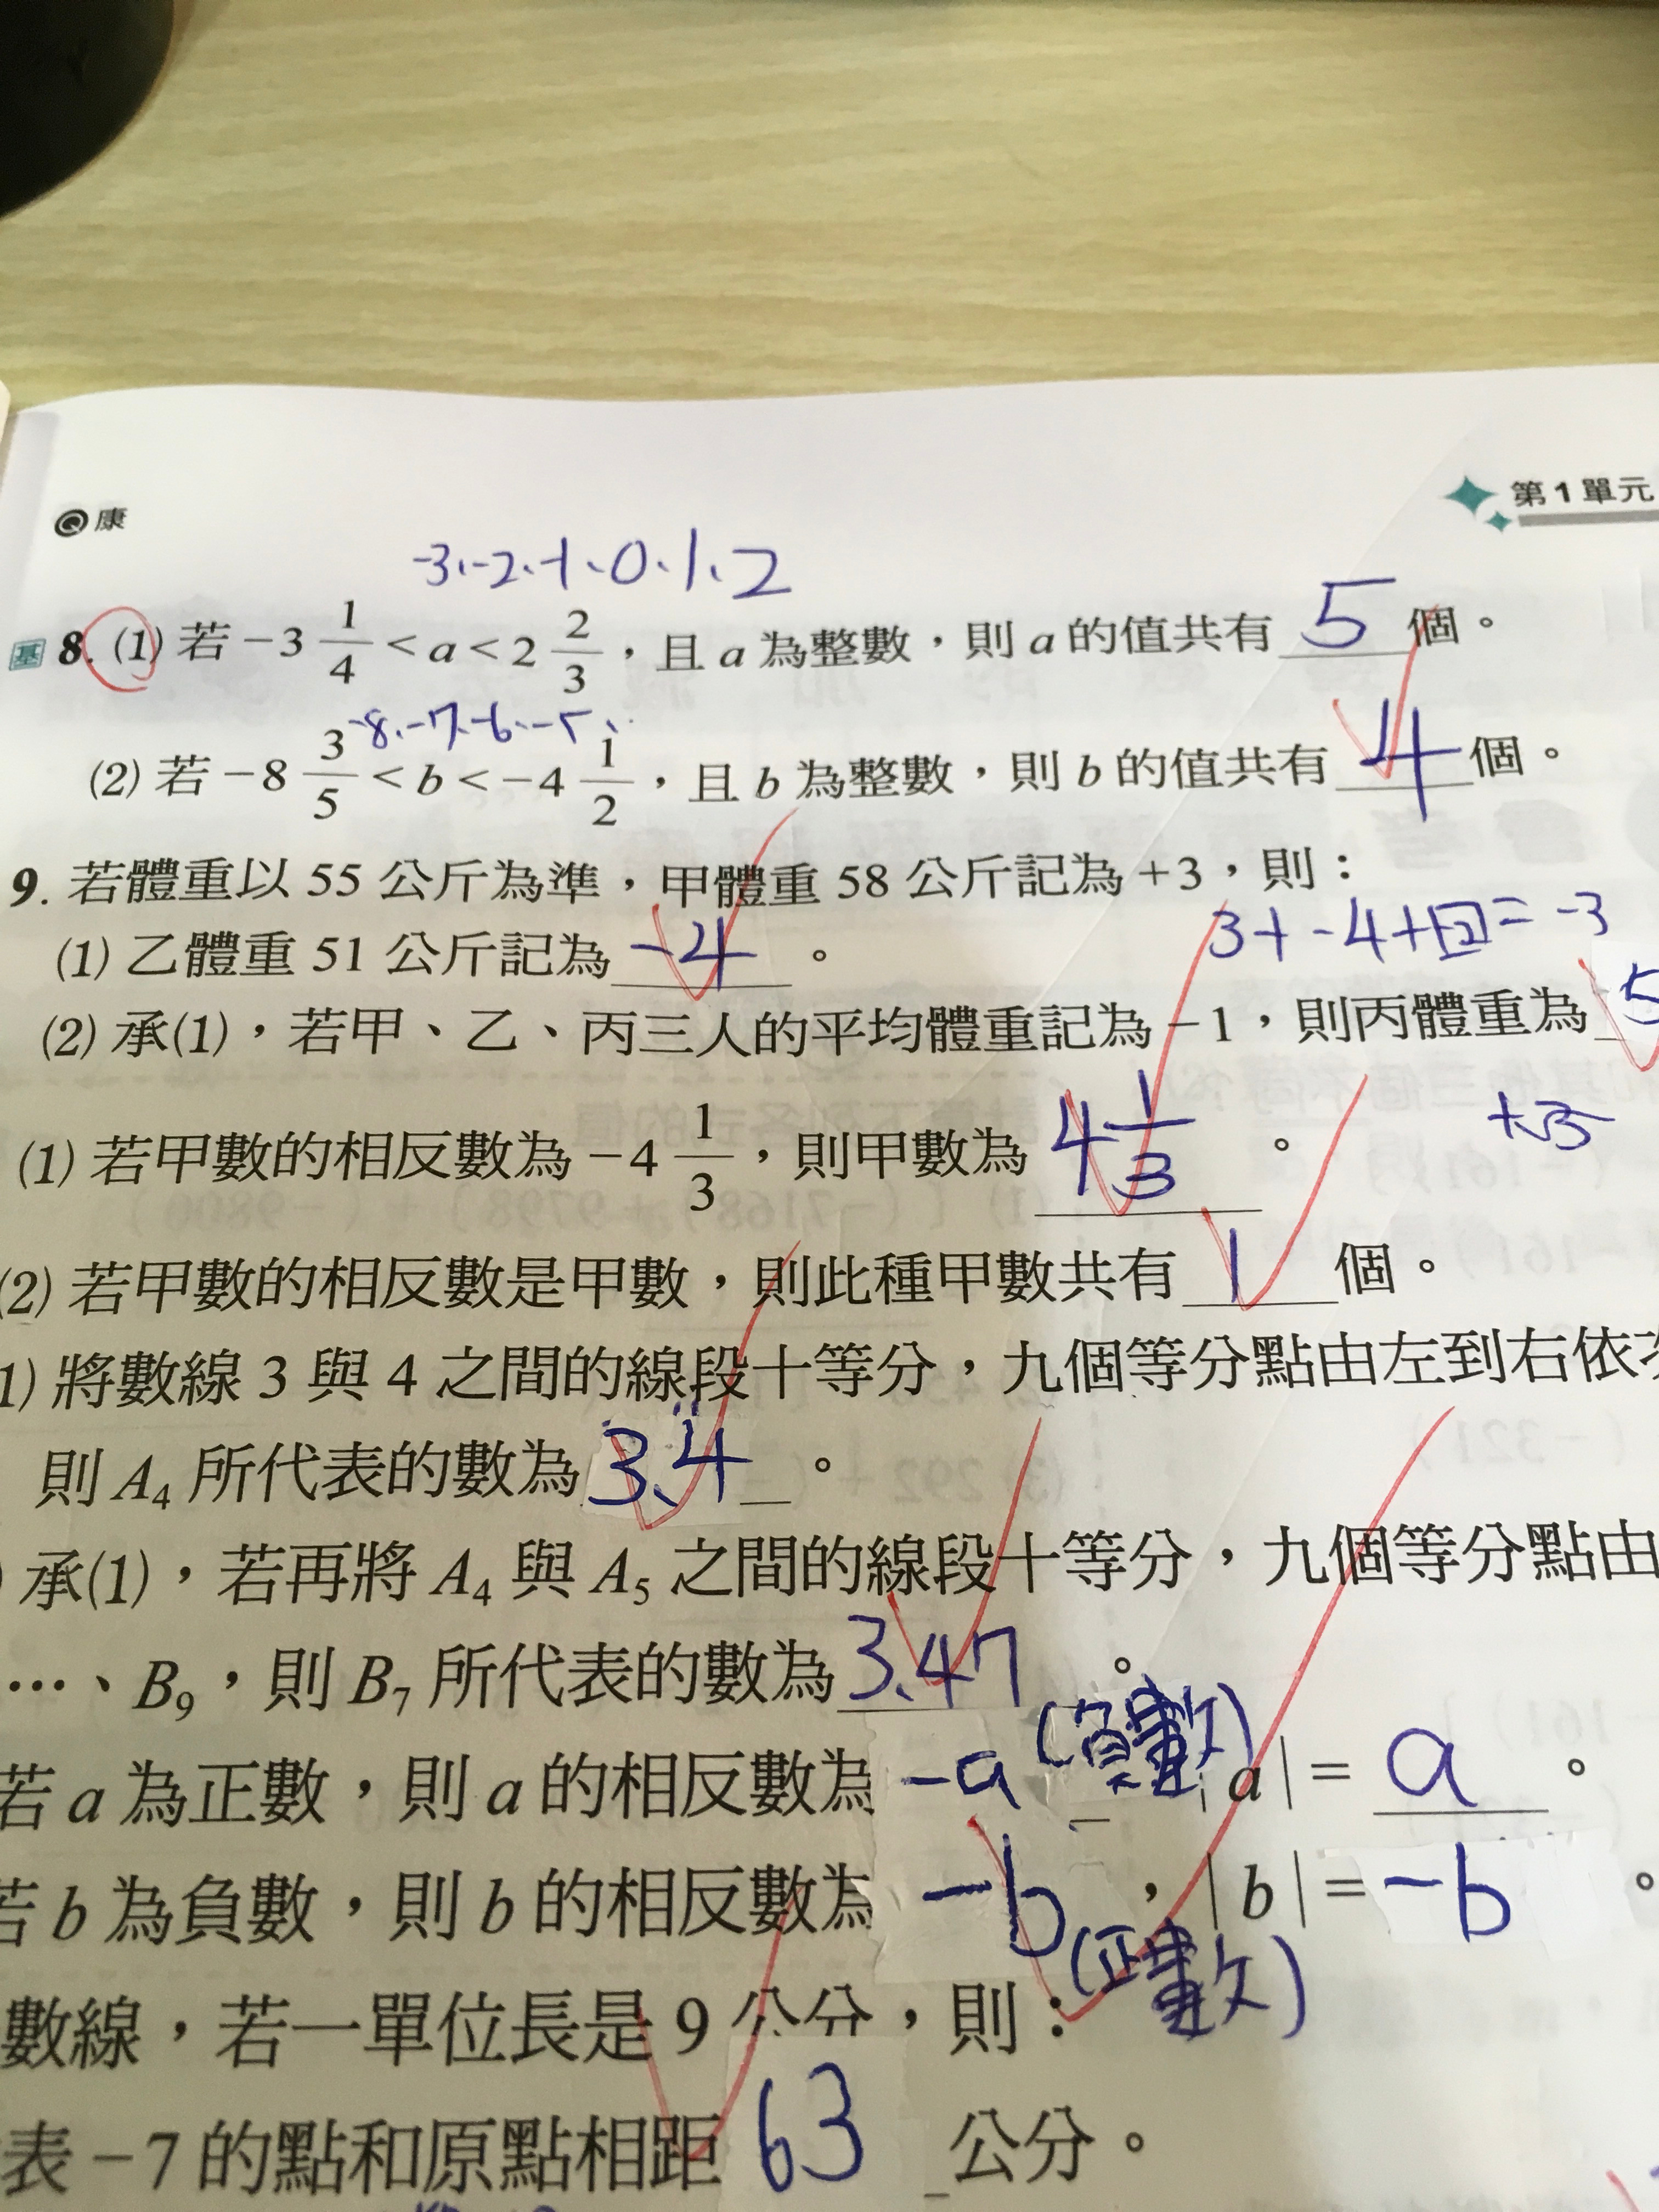 康
第1單元
-3、-2、-1、0、1、2
基 8. (1) 若 -3 1/4 < a < 2 2/3，且 a 為整數，則 a 的值共有 5 個。
-8、-7、-6、-5、
(2) 若 -8 3/5 < b < -4 1/2，且 b 為整數，則 b 的值共有 4 個。
9. 若體重以 55 公斤為準，甲體重 58 公斤記為 +3，則：
3+-4+=-3
(1) 乙體重 51 公斤記為 -4 。
(2) 承(1)，若甲、乙、丙三人的平均體重記為 -1，則丙體重為 5
(1) 若甲數的相反數為 -4 1/3，則甲數為 4 1/3 。
(2) 若甲數的相反數是甲數，則此種甲數共有 1 個。
1) 將數線 3 與 4 之間的線段十等分，九個等分點由左到右依
則 A4 所代表的數為 3.4 。
) 承(1)，若再將 A4 與 A5 之間的線段十等分，九個等分點由
…、B9，則 B7 所代表的數為 3.47 。
若 a 為正數，則 a 的相反數為 -a (負數) |a| = a 。
若 b 為負數，則 b 的相反數為 -b (正數)，|b| = -b 。
數線，若一單位長是 9 公分，則：
表 -7 的點和原點相距 63 公分。